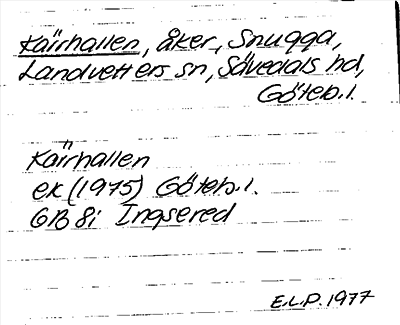 Kärrhallen, åker, Snugga,
Landvetters sn, Sävedals hd,
Göteb.l.
Kärrhallen
ek (1975) Göteb.l.
6B 8i Ingsered
E.L.P. 1977